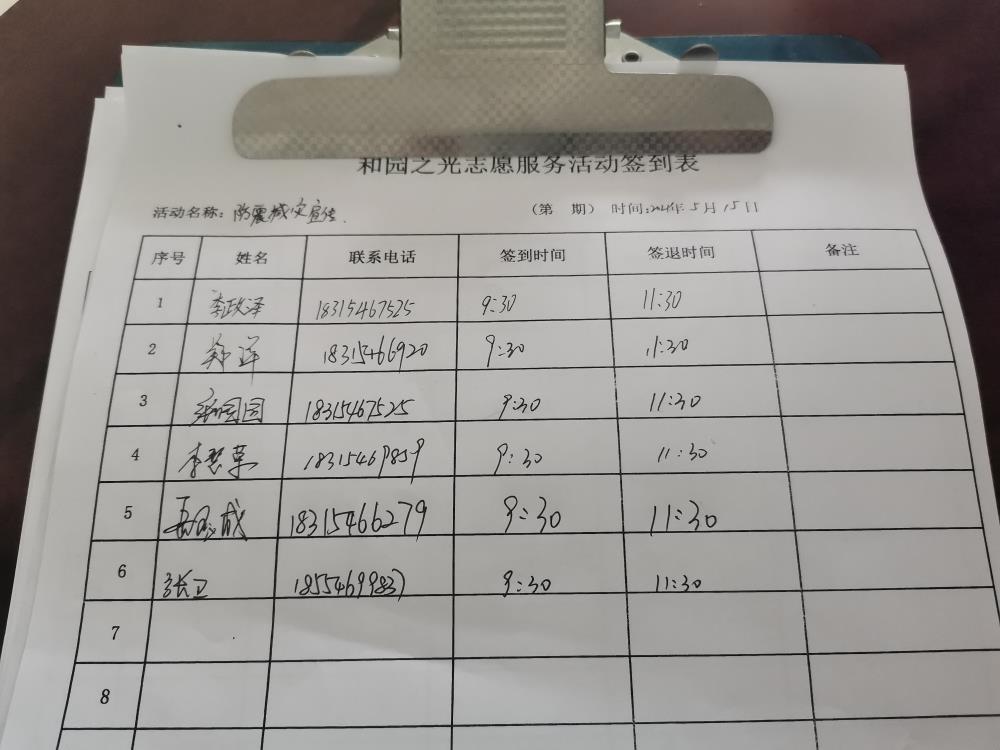 和园之光志愿服务活动签到表
活动名称：防震减灾宣传． （第 期） 时间：2024年5月15日
序号 姓名 联系电话 签到时间 签退时间 备注
1 李政泽 18315467525 9:30 11:30
2 郑洋 18315466920 9:30 11:30
3 张园园 18315467525 9:30 11:30
4 李慧荣 18315469859 9:30 11:30
5 18315466279 9:30 11:30
6 张卫 18554699837 9:30 11:30
7
8